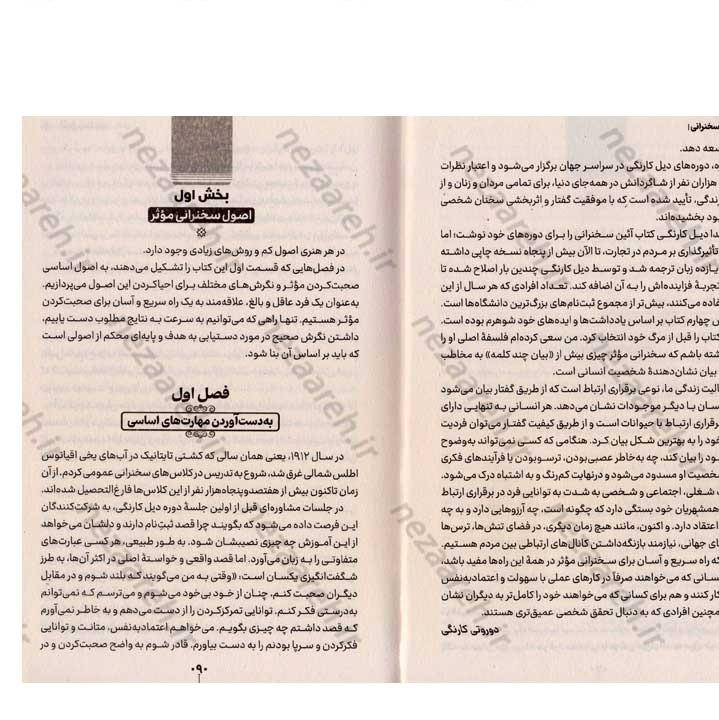 سخنرانی |
سعه دهد.
ه، دوره‌های دیل کارنگی در سراسر جهان برگزار می‌شود و اعتبار نظرات
هزاران نفر از شاگردانش در همه‌جای دنیا، برای تمامی مردان و زنان و از
زندگی، تأیید شده است که با موفقیت گفتار و اثربخشی سخنان شخصی
ود بخشیده‌اند.
دا دیل کارنگی کتاب آئین سخنرانی را برای دوره‌های خود نوشت؛ اما
تأثیرگذاری بر مردم در تجارت، تا الآن بیش از پنجاه نسخه چاپی داشته
یازده زبان ترجمه شد و توسط دیل کارنگی چندین بار اصلاح شده تا
تجربهٔ فزاینده‌اش را به آن اضافه کند. تعداد افرادی که هر سال از این
فاده می‌کنند، بیش‌تر از مجموع ثبت‌نام‌های بزرگ‌ترین دانشگاه‌ها است.
ش چهارم کتاب بر اساس یادداشت‌ها و ایده‌های خود شوهرم بوده است.
کتاب را قبل از مرگ خود انتخاب کرد. من سعی کرده‌ام فلسفهٔ اصلی او را
شته باشم که سخنرانی مؤثر چیزی بیش از «بیان چند کلمه» به مخاطب
بیان نشان‌دهندهٔ شخصیت انسانی است.
الیت زندگی ما، نوعی برقراری ارتباط است که از طریق گفتار بیان می‌شود
سان با دیگر موجودات نشان می‌دهد. هر انسانی به تنهایی دارای
رقراری ارتباط با حیوانات است و از طریق کیفیت گفتار می‌توان فردیت
خود را به بهترین شکل بیان کرد. هنگامی که کسی نمی‌تواند به‌وضوح
ود را بیان کند، چه به‌خاطر عصبی‌بودن، ترسوبودن یا فرآیندهای فکری
شخصیت او مسدود می‌شود و درنهایت کم‌رنگ و به اشتباه درک می‌شود.
شغلی، اجتماعی و شخصی به شدت به توانایی فرد در برقراری ارتباط
همشهریان خود بستگی دارد که چگونه است، چه آرزوهایی دارد و به چه
اعتقاد دارد. و اکنون، مانند هیچ زمان دیگری، در فضای تنش‌ها، ترس‌ها
ای جهانی، نیازمند بازنگه‌داشتن کانال‌های ارتباطی بین مردم هستیم.
که راه سریع و آسان برای سخنرانی مؤثر در همهٔ این راه‌ها مفید باشد،
سانی که می‌خواهند صرفاً در کارهای عملی با سهولت و اعتمادبه‌نفس
کار کنند و هم برای کسانی که می‌خواهند خود را کامل‌تر به دیگران نشان
مچنین افرادی که به دنبال تحقق شخصی عمیق‌تری هستند.
دوروتی کارنگی
بخش اول
اصول سخنرانی مؤثر
در هر هنری اصول کم و روش‌های زیادی وجود دارد.
در فصل‌هایی که قسمت اول این کتاب را تشکیل می‌دهند، به اصول اساسی
صحبت‌کردن مؤثر و نگرش‌های مختلف برای احیاکردن این اصول می‌پردازیم.
به‌عنوان یک فرد عاقل و بالغ، علاقه‌مند به یک راه سریع و آسان برای صحبت‌کردن
مؤثر هستیم. تنها راهی که می‌توانیم به سرعت به نتایج مطلوب دست یابیم،
داشتن نگرش صحیح در مورد دستیابی به هدف و پایه‌ای محکم از اصولی است
که باید بر اساس آن بنا شود.
فصل اول
به‌دست‌آوردن مهارت‌های اساسی
در سال ۱۹۱۲، یعنی همان سالی که کشتی تایتانیک در آب‌های یخی اقیانوس
اطلس شمالی غرق شد، شروع به تدریس در کلاس‌های سخنرانی عمومی کردم. از آن
زمان تاکنون بیش از هفتصدوپنجاه‌هزار نفر از این کلاس‌ها فارغ‌التحصیل شده‌اند.
در جلسات مشاوره‌ای قبل از اولین جلسهٔ دوره دیل کارنگی، به شرکت‌کنندگان
این فرصت داده می‌شود که بگویند چرا قصد ثبت‌نام دارند و دلشان می‌خواهد
از این آموزش چه چیزی نصیبشان شود. به طور طبیعی، هر کسی عبارت‌های
متفاوتی را به زبان می‌آورد. اما قصد واقعی و خواستهٔ اصلی در اکثر آن‌ها، به طرز
شگفت‌انگیزی یکسان است: «وقتی به من می‌گویند که بلند شوم و در مقابل
دیگران صحبت کنم، چنان از خود بی‌خود می‌شوم و می‌ترسم که نمی‌توانم
به‌درستی فکر کنم. توانایی تمرکزکردن را از دست می‌دهم و به خاطر نمی‌آورم
که قصد داشتم چه چیزی بگویم. می‌خواهم اعتمادبه‌نفس، متانت و توانایی
فکرکردن و سرپا بودنم را به دست بیاورم. قادر شوم به واضح صحبت‌کردن و در
۰۹۰
nezaareh.ir
nezaareh.ir
nezaareh.ir
nezaareh.ir
nezaareh.ir